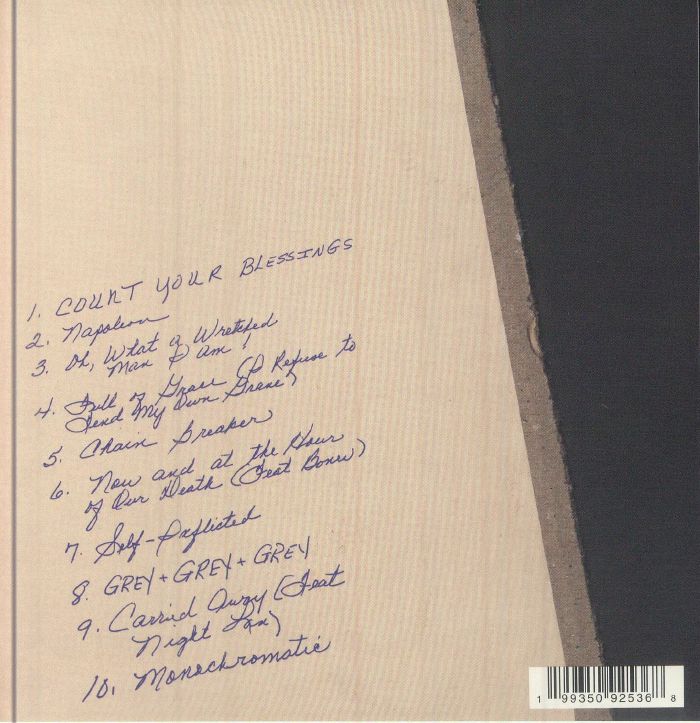 1. COUNT YOUR BLESSINGS
2. Napoleon
3. Oh, What a Wretched
Man I Am!
4. Full of Grace (I Refuse to
Tend My Own Grave)
5. Chain Breaker
6. Now and at the Hour
of Our Death (Feat Bones)
7. Self-Inflicted
8. GREY + GREY + GREY
9. Carried Away (Feat
Night Lovell)
10. Monochromatic
1 99350 92536 8